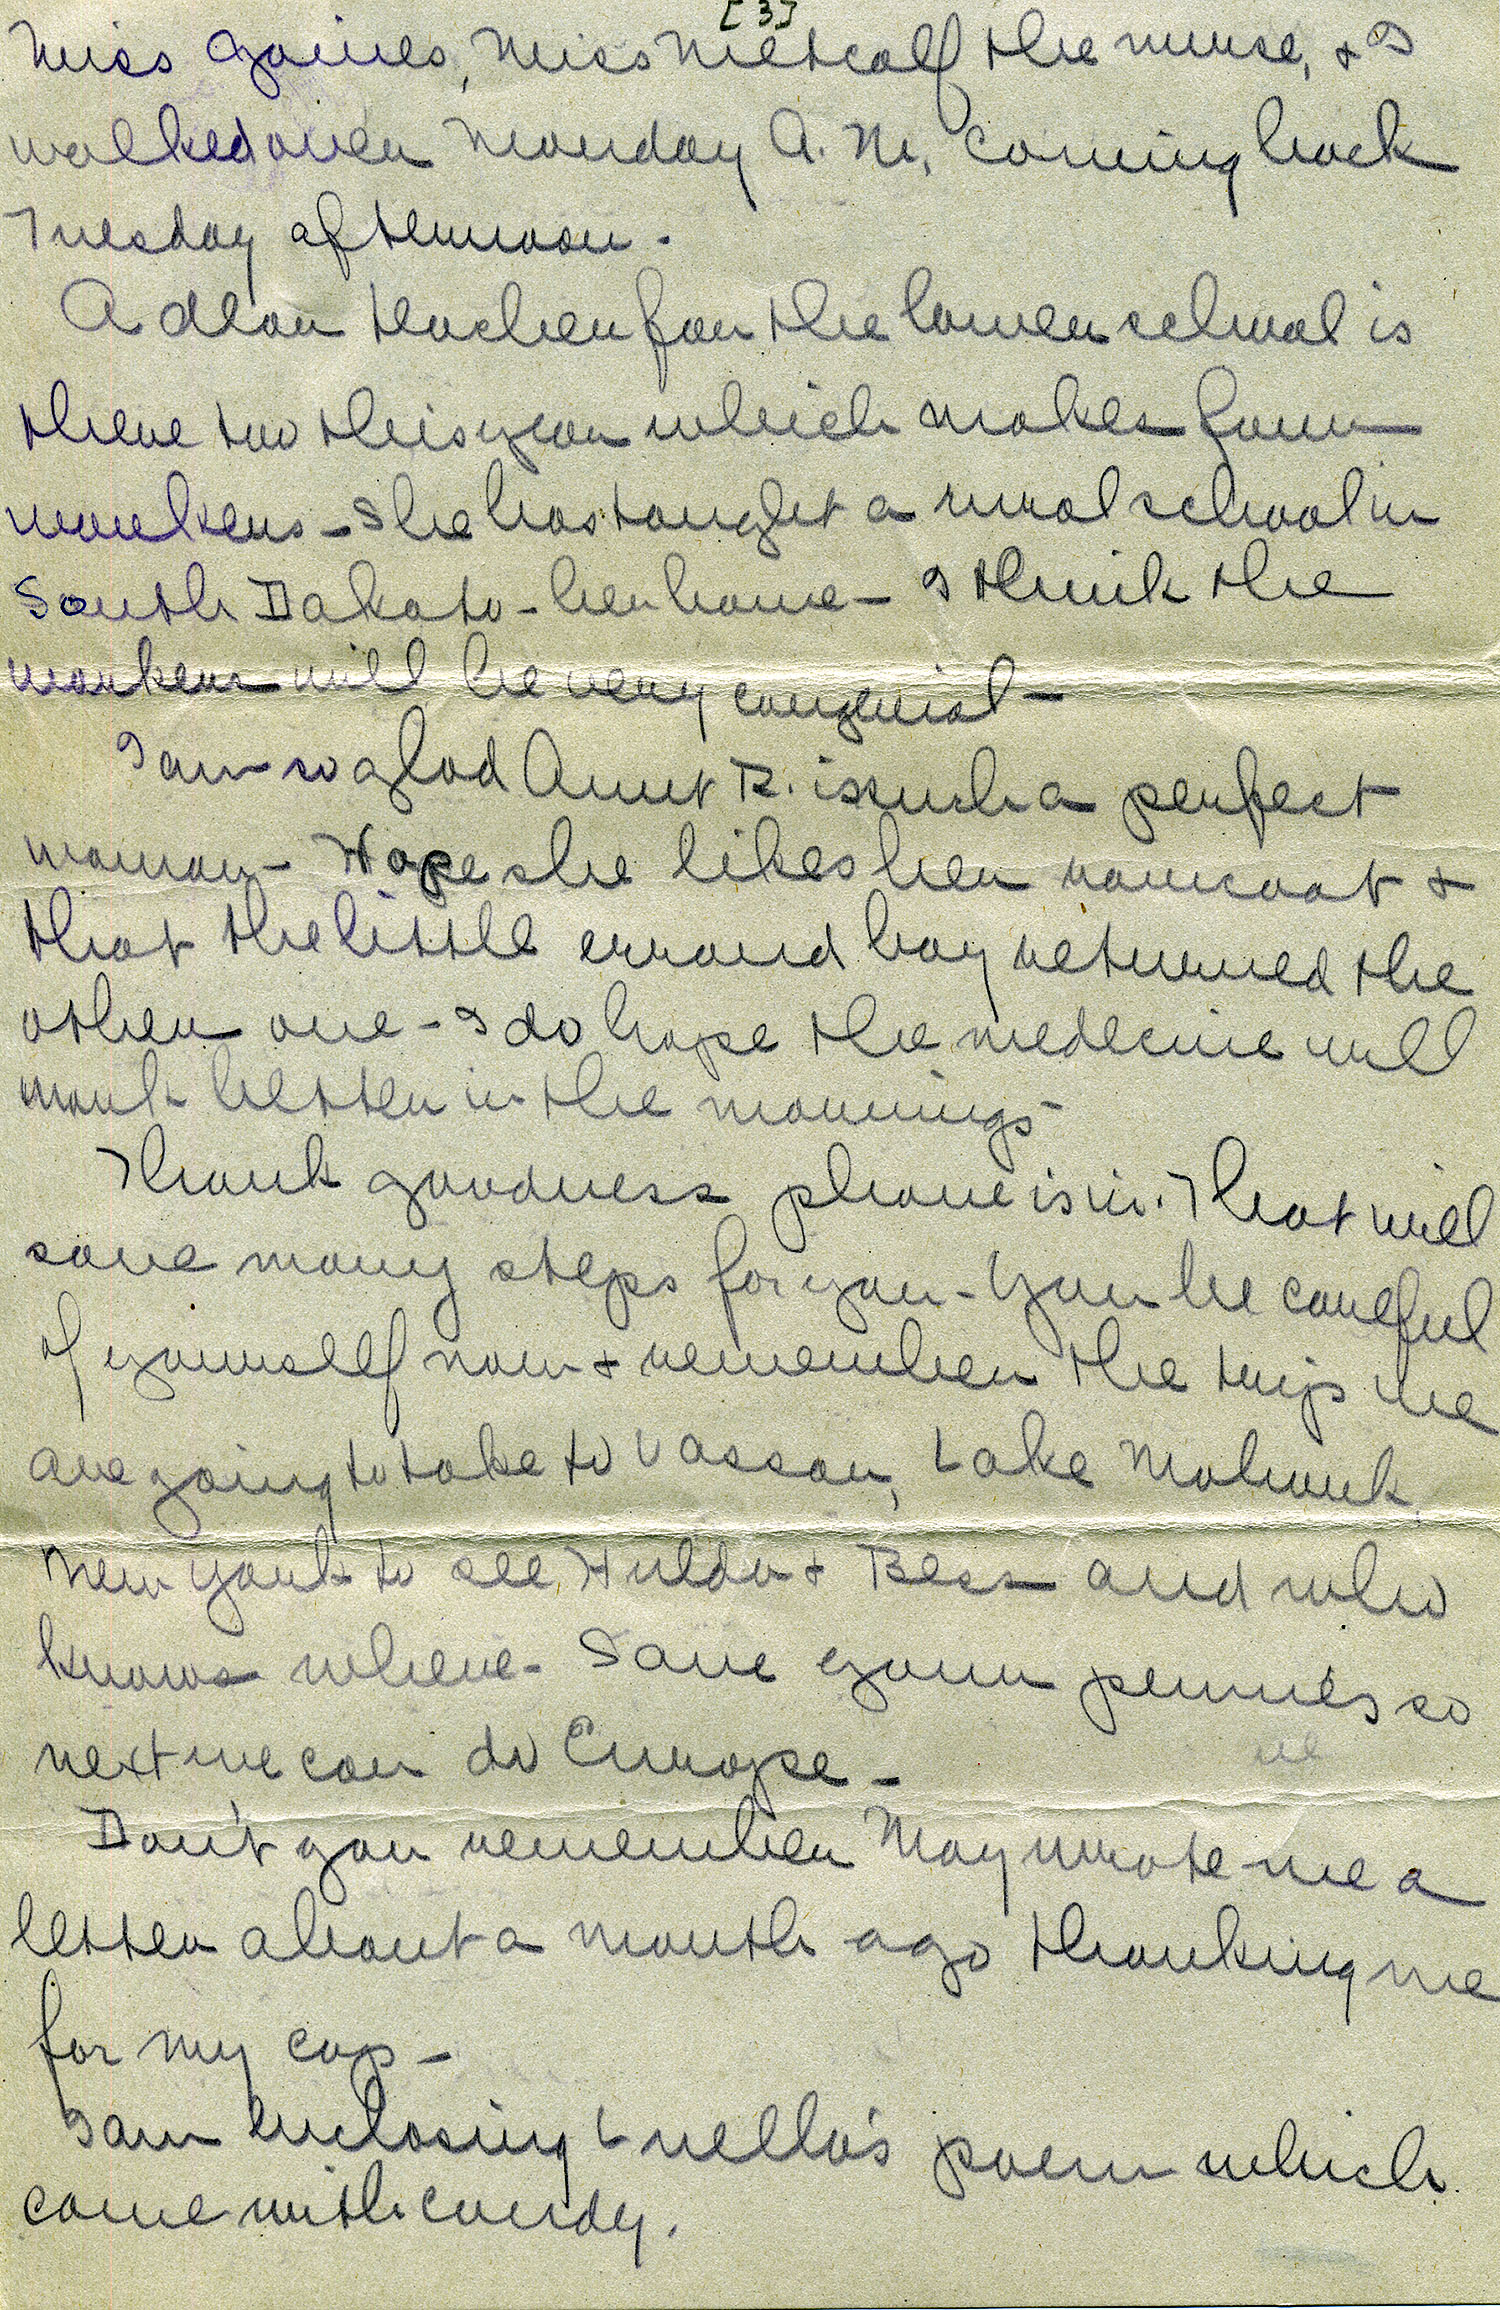 [3]
Miss Gaines, Miss Metcalf the nurse, & I
walked over Monday A.M., coming back
Tuesday afternoon.
A dear teacher for the lower school is
there too this year which makes four
workers - She has taught a rural school in
South Dakota - her home - I think the
workers will be very congenial -
I am so glad Aunt B. is such a perfect
woman - Hope she likes her raincoat &
that the little errand boy returned the
other one - I do hope the medecine will
work better in the mornings -
Thank goodness phone is in. That will
save many steps for you - You be careful
of yourself now & remember the trips we
are going to take to Vassar, Lake Mohonk
New York to see Hulda & Bess and who
knows where - Save your pennies so
next we can do Europe -
Don't you remember May wrote me a
letter about a month ago thanking me
for my cap -
I am enclosing Luella's poem which
came with candy.